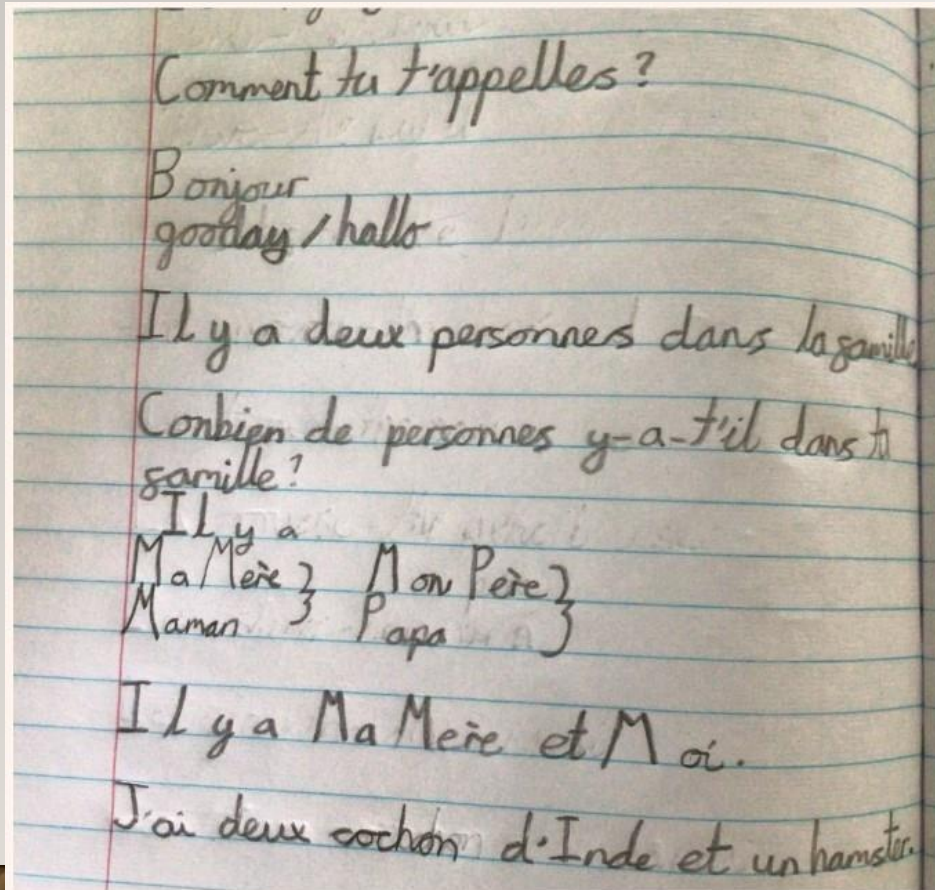 Comment tu t'appelles?
Bonjour
gooday / hallo
Il y a deux personnes dans la famille
Conbien de personnes y-a-t'il dans ta
famille?
Il y a
Ma Mère } Mon Père }
Maman Papa
Il y a Ma Mère et Moi.
J'ai deux cochon d'Inde et un hamster.